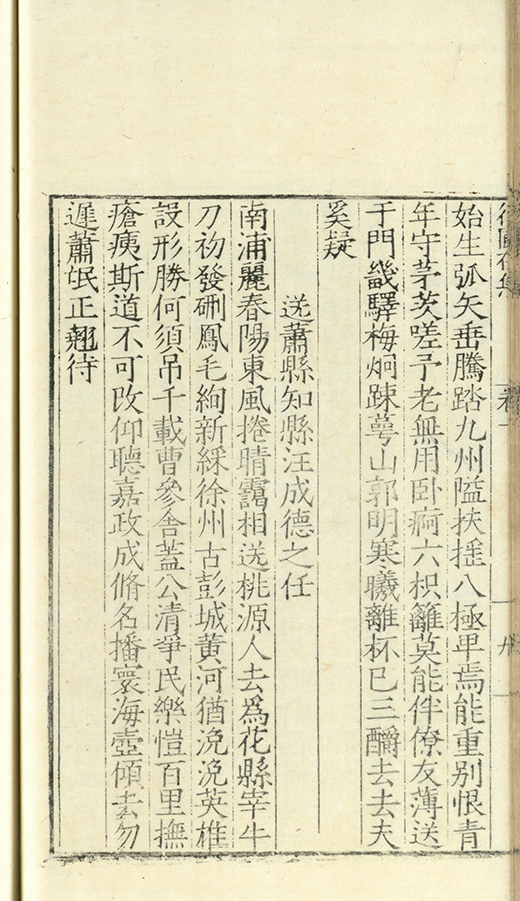 始生弧矢垂騰踏九州隘扶搖八極卑焉能重别恨青
年守茅茨嗟予老無用卧痾六枳籬莫能伴僚友薄送
于門畿驛梅烱踈蕚山郭明寒曦離杯已三釂去去夫
奚疑
送蕭縣知縣汪成德之任
南浦麗春陽東風捲晴靄相送桃源人去爲花縣宰牛
刀初發硎鳳毛絢新綵徐州古彭城黃河猶浼浼英雄
設形勝何須吊千載曹參舍蓋公清爭民樂愷百里撫
瘡痍斯道不可改仰聽嘉政成脩名播寰海壺傾去勿
遲蕭氓正翹待